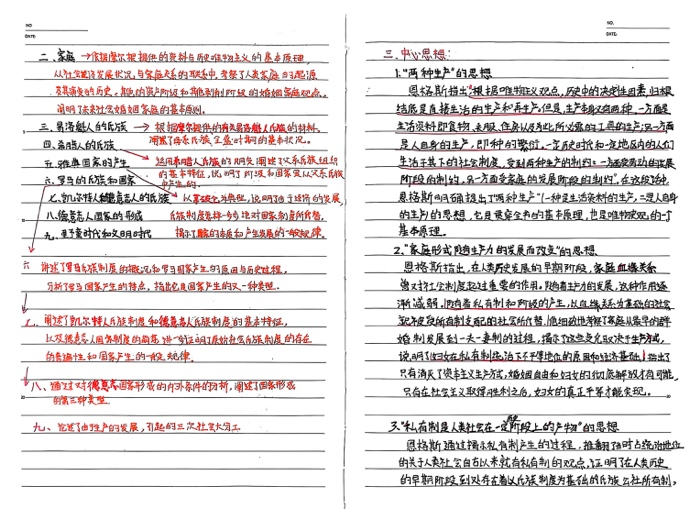 NO.
DATE:
二、家庭 → 依据摩尔根提供的资料与历史唯物主义的基本原理,
从社会经济发展状况,与家庭关系的联系中,考察了人类家庭的起源
及其演变的历史,
阐明了未来社会婚姻家庭的基本原则。
三、易洛魁人的氏族 → 根据摩尔提供的有关易洛魁人氏族的材料,
四、希腊人的氏族
五、雅典国家的产生
运用希腊人氏族的
的基本特征,说明了阶级和国家是从父系氏族
中产生的。
六、罗马的氏族和国家
七、凯尔特人和德意志人的氏族
八、德意志人国家的形成
氏族制度将一步步地对国家制度所代替,
九、野蛮时代和文明时代
揭示了国家的本质和产生发展的一般规律。
六 讲述了罗马氏族制度的概况和罗马国家产生的原因与历史过程,
分析了罗马国家产生的特点,指出它是国家产生的又一种类型。
七、阐述了凯尔特人氏族制度和德意志人氏族制度的基本特征,
以及德意志人国家制度的萌芽,进一步证明了原始公社氏族制度的存在
的普遍性和国家产生的一般规律。
八、通过对德意志国家形成的内外条件的分析,阐述了国家形成
的第三种类型。
九、论述了由生产的发展,引起的三次社会大分工。
NO.
DATE:
三、中心思想:
1."两种生产"的思想
恩格斯指出,"根据唯物主义观点,历史中的决定性因素,归根
结底是直接生活的生产和再生产。但是,生产本身又有两种,一方面是
生活资料即食物、衣服、住房以及为此所必需的工具的生产;另一方面
是人自身的生产,即种的繁衍。一定历史时代和一定地区内的人们
生活于其下的社会制度,受到两种生产的制约:一方面受劳动的发展
阶段的制约,另一方面受家庭的发展阶段的制约"。在这段话中,
恩格斯明确提出了"两种生产"(一种是生活资料的生产,二是人自身
的生产)的思想,它且贯穿全书的基本原理,也是唯物史观的一个
基本原理。
2."家庭形式随生产力的发展而改变"的思想
恩格斯指出,在人类历史发展的早期阶段,家庭血缘关系
曾对社会制度起过重要的作用。随着生产力的发展,这种作用逐
渐减弱,随着私有制和阶级的产生,以血缘关系为基础的社会
制发展到一夫一妻制的过程,揭示了这些变化取决于生产方式,
说明了妇女在私有制统治下不平等地位的原因和经济基础,指出了
只有消灭了资本主义生产方式,婚姻自由和妇女的彻底解放才有可能,
只有在社会主义取得胜利之后,妇女的真正平等才能实现。
3."私有制是人类社会在一定发展阶段上的产物"的思想
恩格斯通过揭示私有制产生的过程,推翻了当时占统治地位
的关于人类社会自古以来就有私有制的观点,证明了在人类历史
的早期阶段到处存在着以氏族制度为基础的氏族公社所有制,